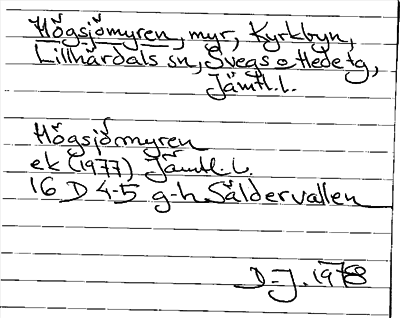 Högsjömyren, myr, Kyrkbyn,
Lillhärdals sn, Svegs o Hede tg,
Jämtl.l.
Högsjömyren
ek (1977) Jämtl.l.
16 D 4-5 g-h Säldervallen
D-J. 1978